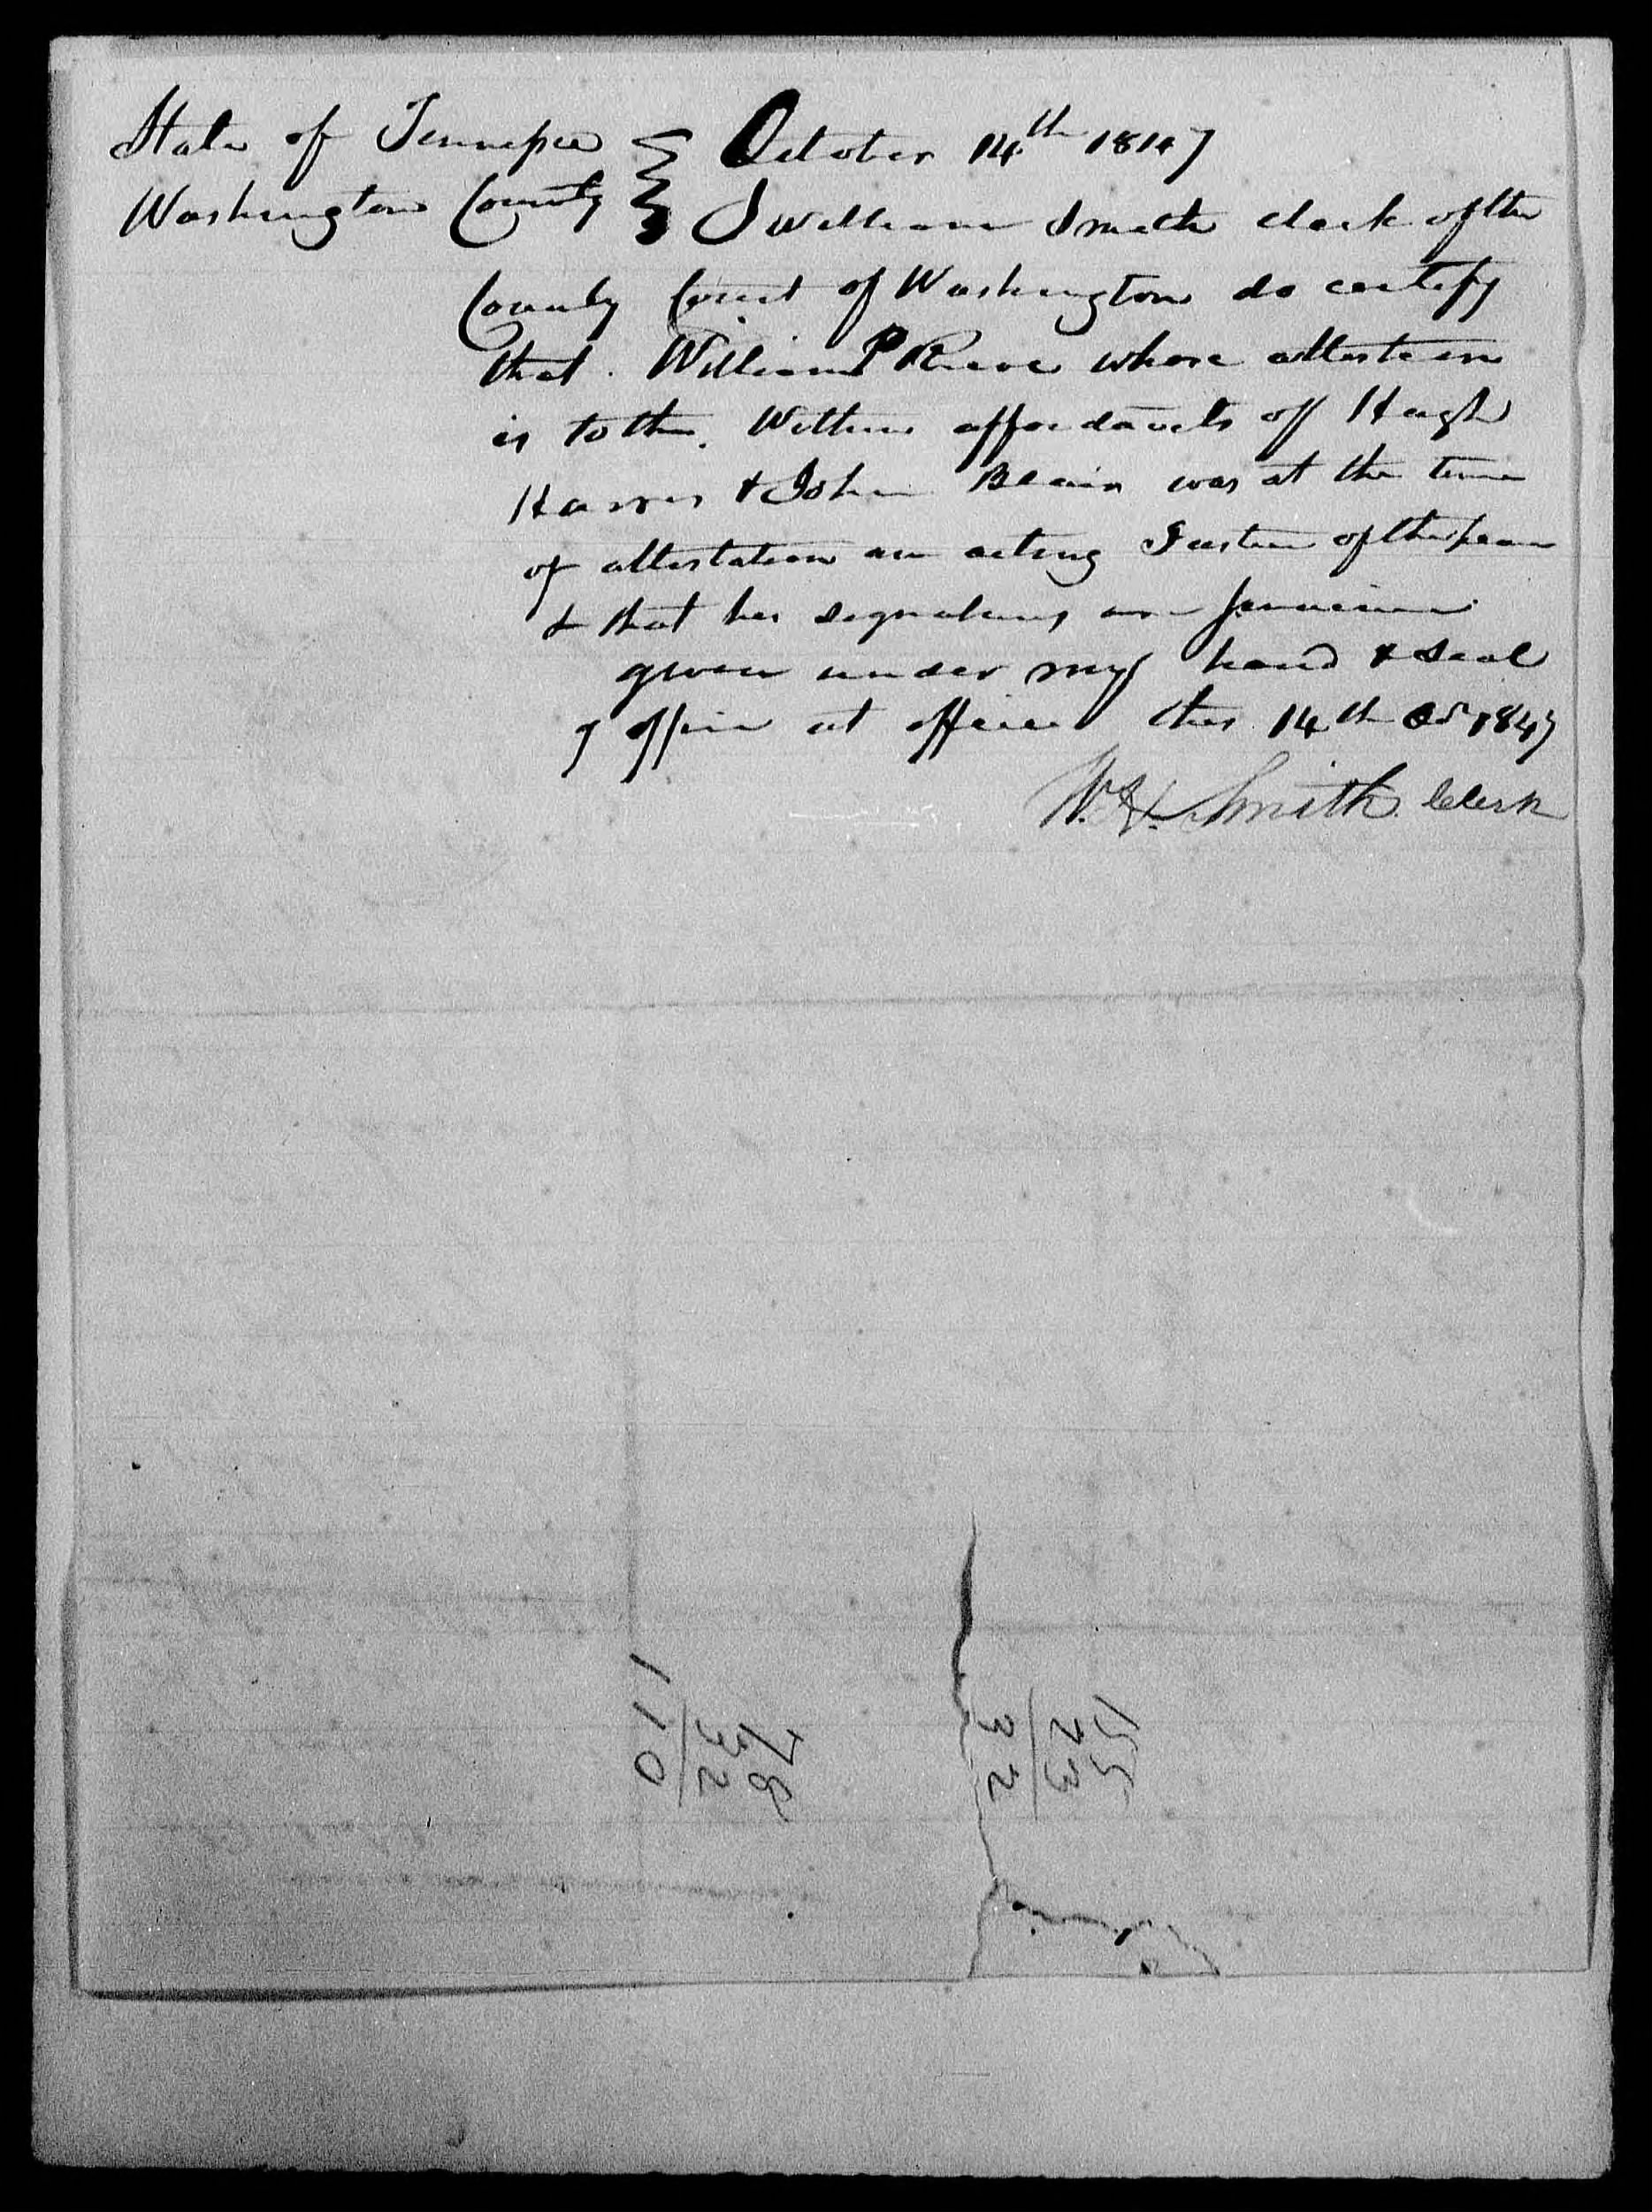 State of Tennessee } October 14th 1847
Washington County } I William Smith clerk of the
County Court of Washington do certify
that William P Reeve whose attestation
is to the Within affidavits of Hugh
Harris & John Blair was at the time
of attestation an acting Justice of the peace
& that his signatures are genuine
given under my hand & seal
of office at office this 14th Oct 1847
W. H. Smith Clerk
110
35
78
32
23
55